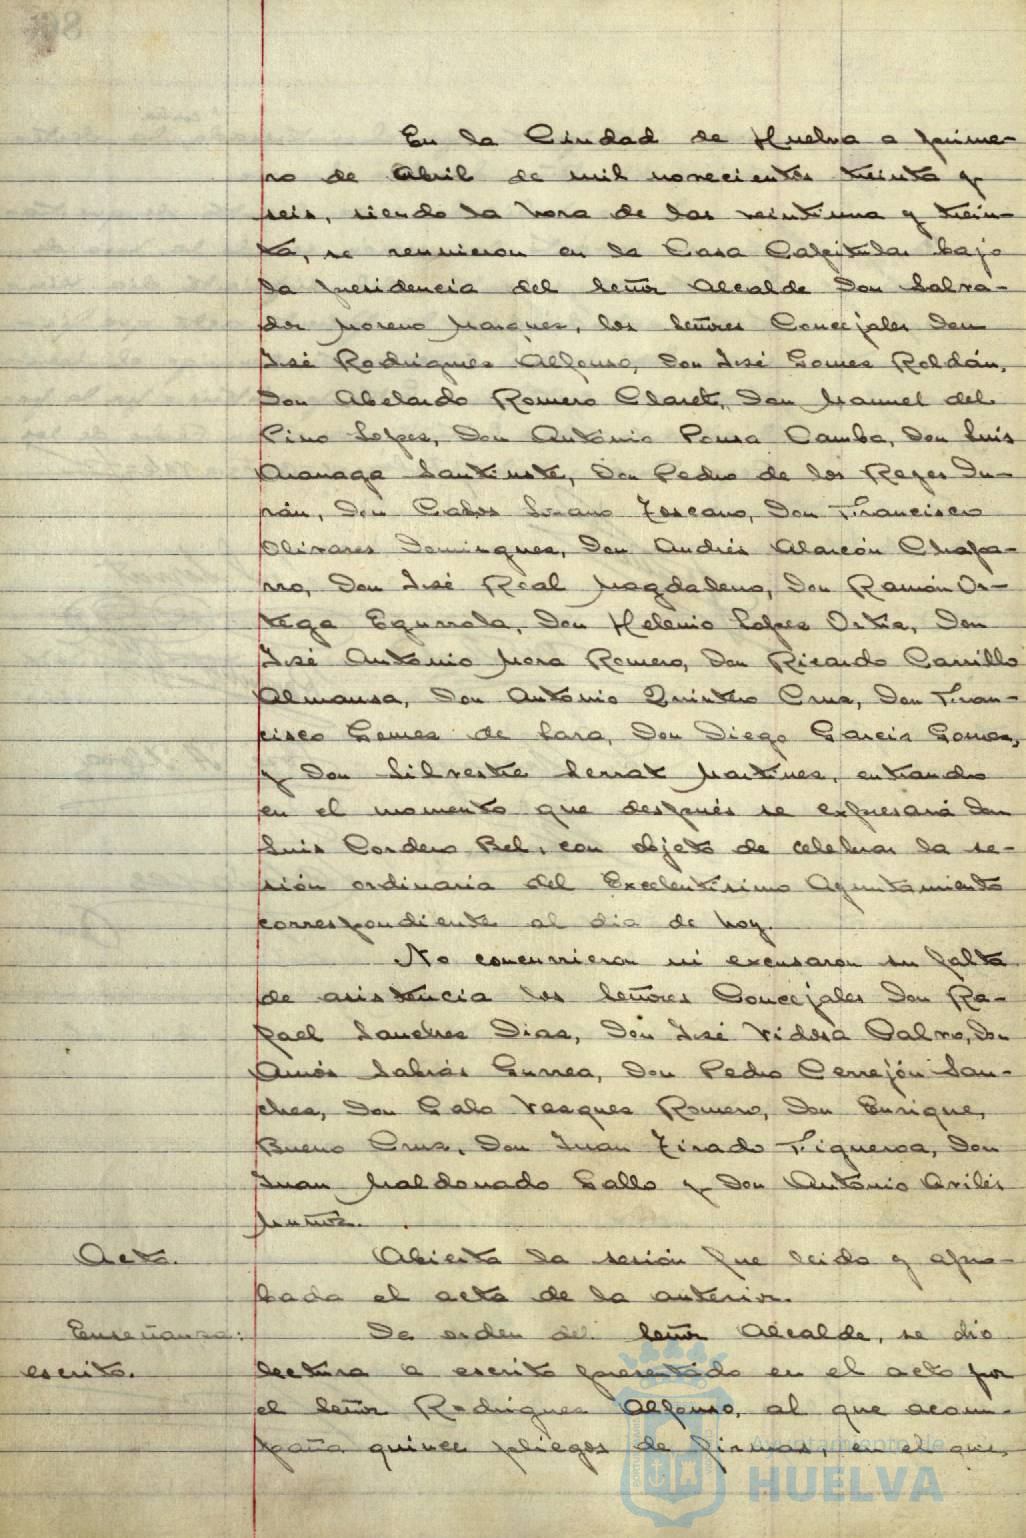 En la Ciudad de Huelva a prime-
ro de Abril de mil novecientos treinta y
seis, siendo la hora de las veintiuna y trein-
ta, se reunieron en la Casa Capitular bajo
la presidencia del Señor Alcalde Don Salva-
dor Moreno Marquez, los Señores Concejales Don
José Rodriguez Alfonso, Don José Gomez Roldán,
Don Abelardo Romero Claret, Don Manuel del
Pino Lopez, Don Antonio Ponsa Camba, Don Luis
Santiuste, Don Pedro de los Reyes Du-
rán, Don Lozano Toscano, Don Francisco
Olivares Dominguez, Don Andrés Alarcón Chapa-
rro, Don José Real Magdaleno, Don Ramón Or-
tega Egurrola, Don Helenio Lopez Ortiz, Don
José Antonio Mora Romero, Don Ricardo Carrillo
Almansa, Don Antonio Quintero Cruz, Don Fran-
cisco Gomez de Lara, Don Diego Garcia Gomez,
y Don Silvestre Serrat Martinez, entrando
en el momento que después se expresará Don
Luis Cordero Bel, con objeto de celebrar la se-
sión ordinaria del Excelentisimo Ayuntamiento
correspondiente al dia de hoy.
No concurrieron ni excusaron su falta
de asistencia los Señores Concejales Don Ra-
fael Sanchez Diaz, Don José Vidosa Calvo, Don
Amós Sabrás Gurrea, Don Pedro Cerrejón San-
chez, Don Galo Vazquez Romero, Don Enrique
Bueno Cruz, Don Juan Tirado Figueroa, Don
Juan Maldonado Gallo y Don Antonio Avilés
Muñoz.
Acta.
Abierta la sesión fue leida y apro-
bada el acta de la anterior.
Enseñanza:
escrito.
De orden del Señor Alcalde, se dió
lectura a escrito presentado en el acto por
el Señor Rodriguez Alfonso, al que acom-
paña quince pliegos de firmas, en el que,
Ayuntamiento de
HUELVA